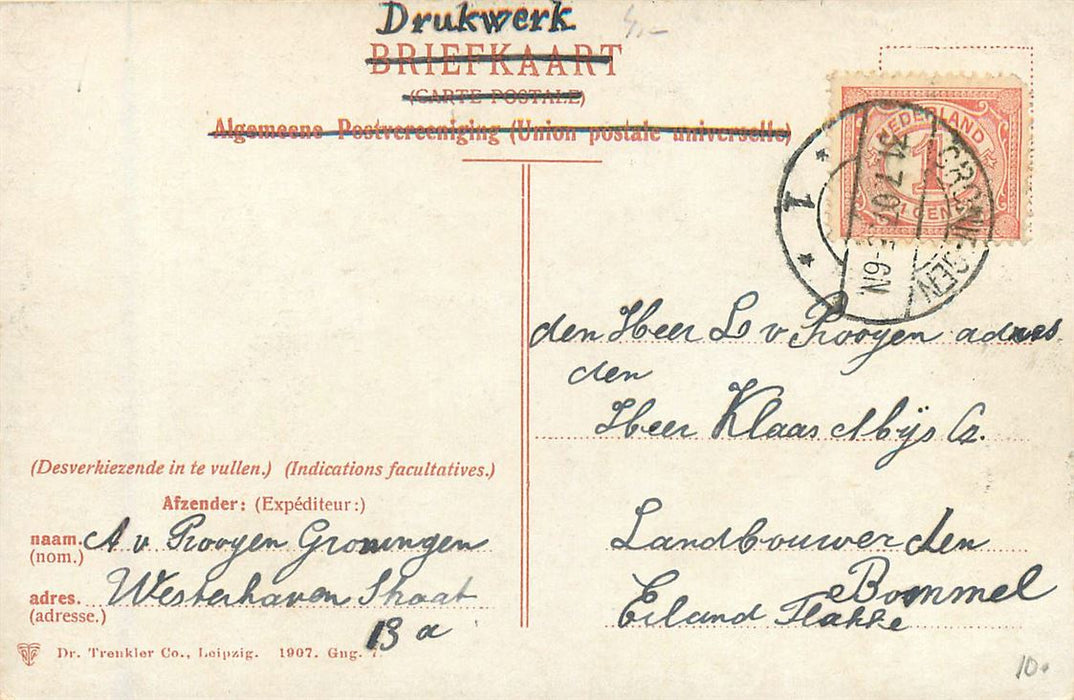 Drukwerk
BRIEFKAART
(CARTE POSTALE)
Algemeene Postvereeniging (Union postale universelle)
NEDERLAND
1
CENT
GRONINGEN
31.7.07
5-6N
1
den Heer L v Rooyen adres
den
Heer Klaas Mijs Cz.
Landbouwer den
Bommel
Eiland Flakke
(Desverkiezende in te vullen.) (Indications facultatives.)
Afzender: (Expéditeur:)
naam. A v Rooyen Groningen
(nom.)
adres. Westerhaven Straat
(adresse.)
13 a
Dr. Trenkler Co., Leipzig. 1907. Gng. 7.
10.